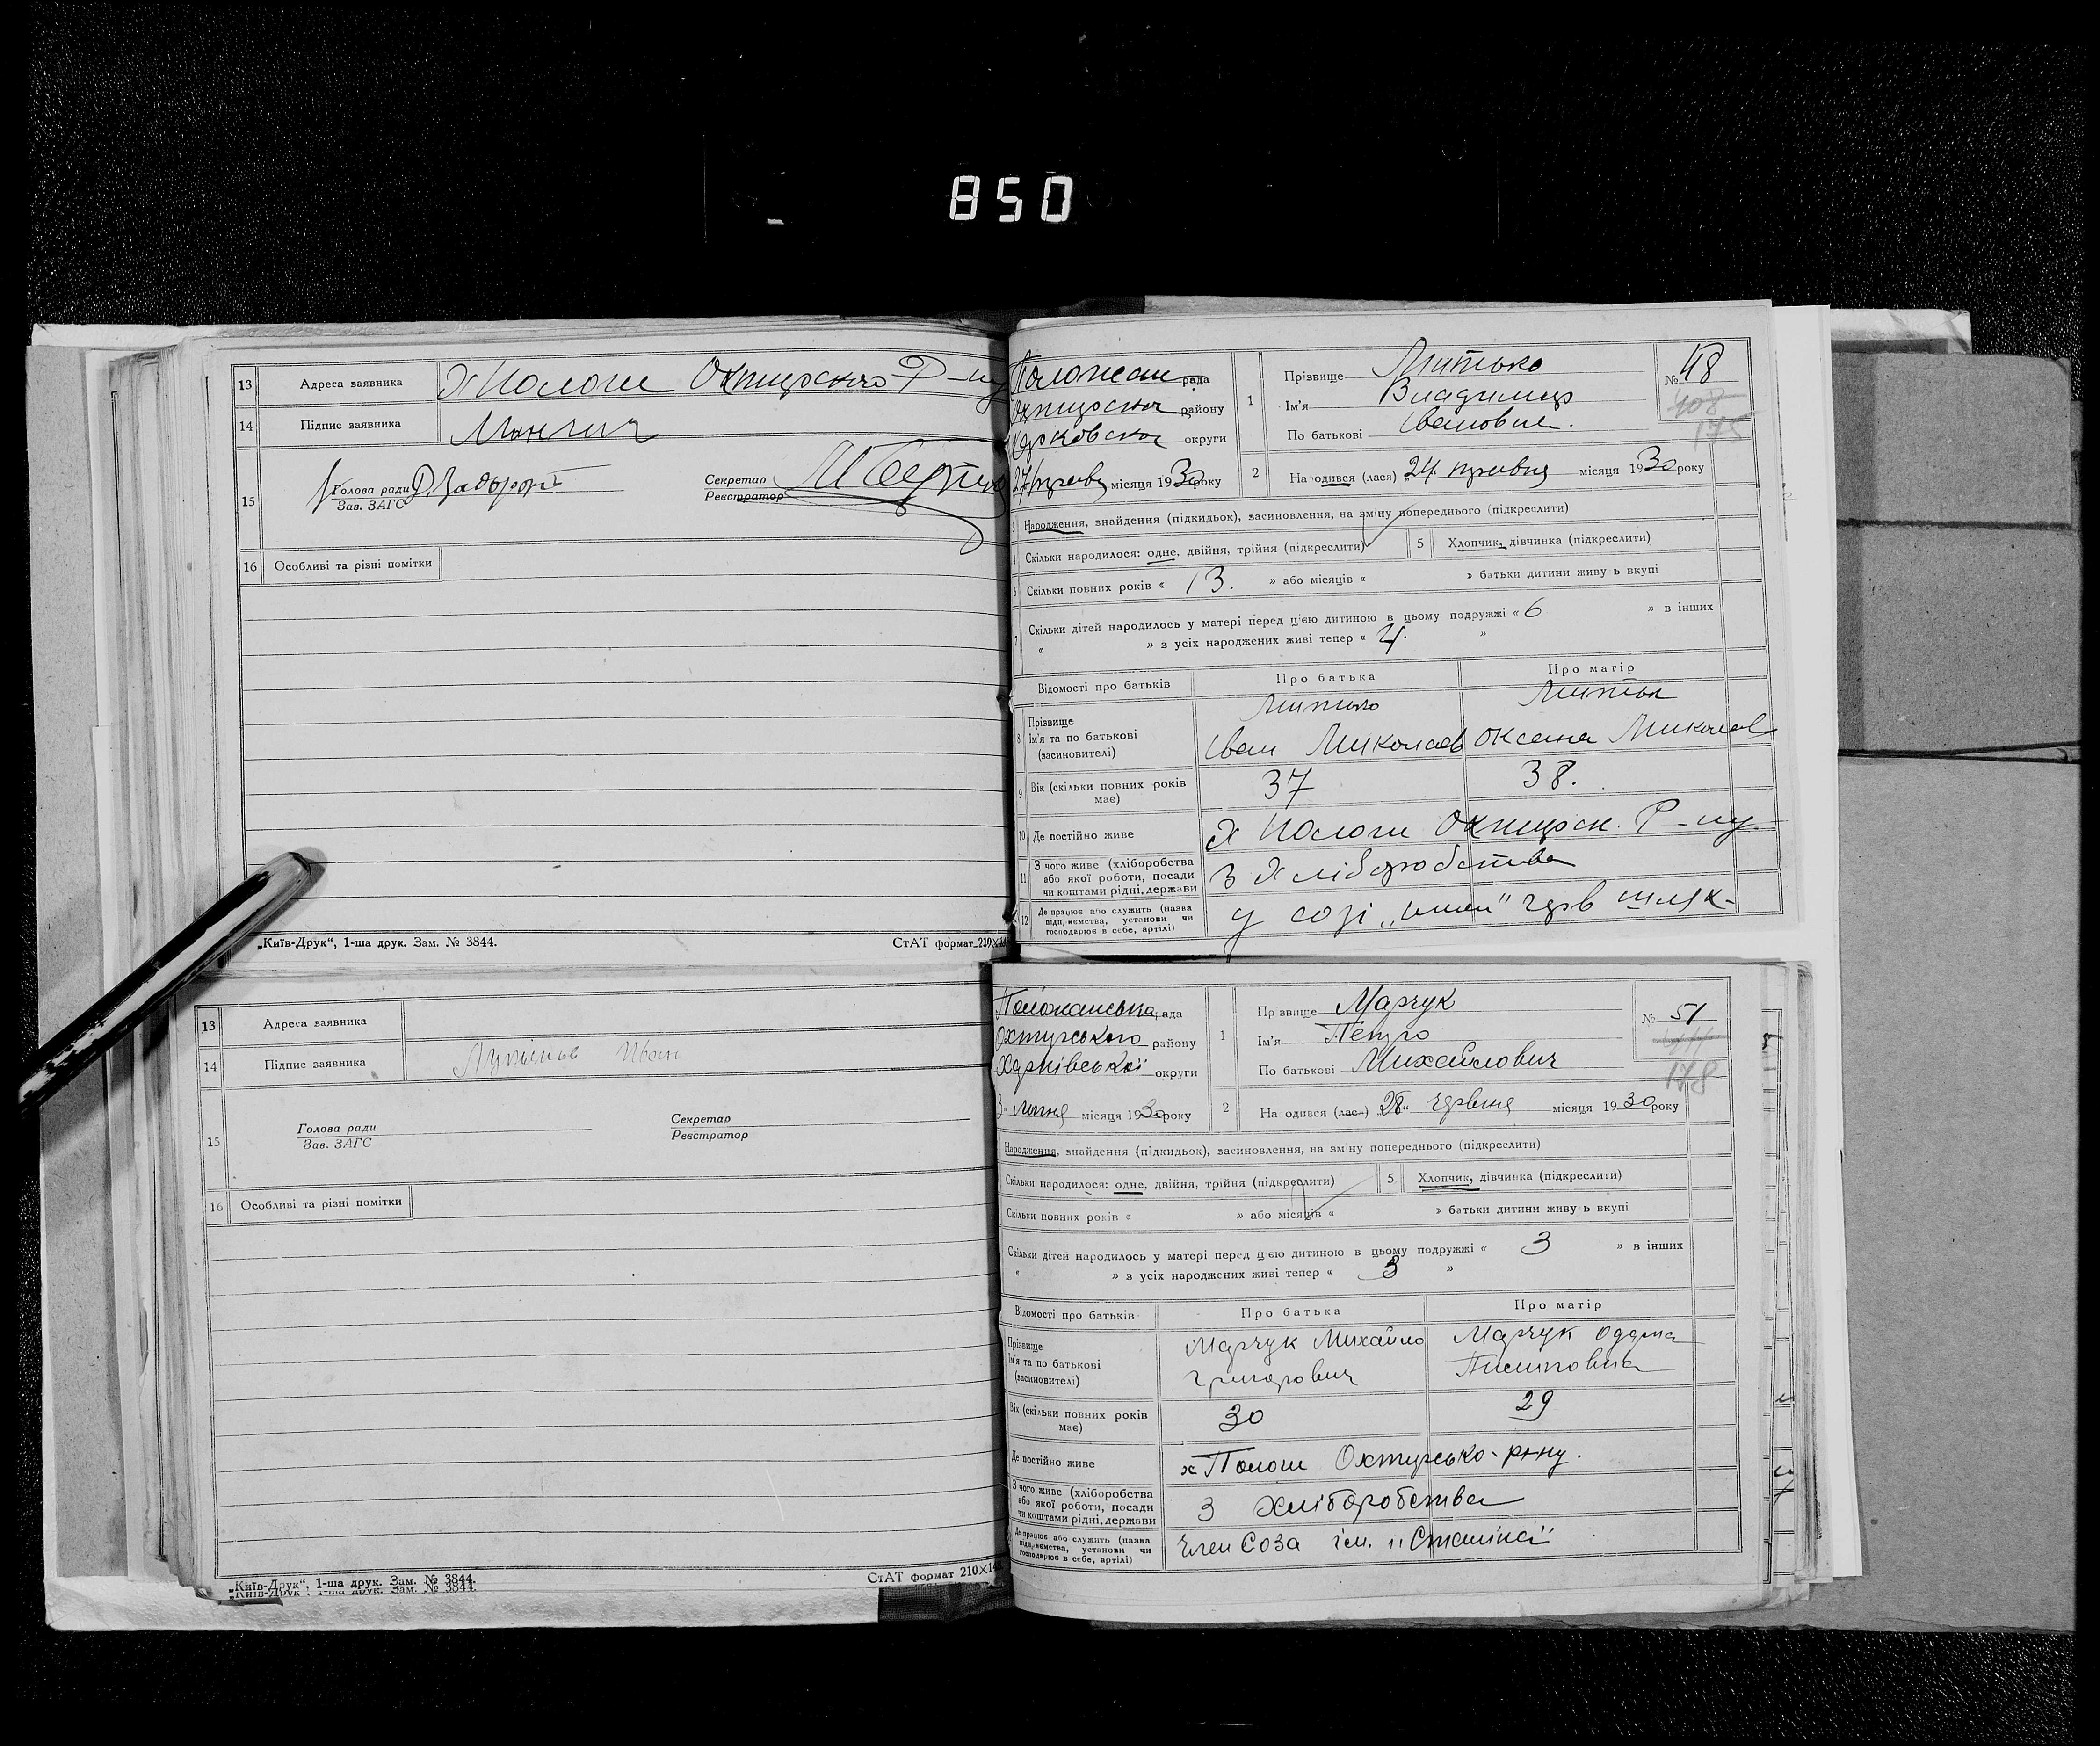 850
13 Адреса заявника Х Пологи Охтирского Р-ну
14 Підпис заявника
15 Голова ради
Зав. ЗАГС
Секретар
Реєстратор
16 Особливі та різні помітки
„Київ-Друк“, 1-ша друк. Зам. № 3844. СтАТ формат 210×1
рада
району
округи
27 травня місяця 1930 року
1 Прізвище Митько
Ім'я Владимир
По батькові Іванович.
№ 48
175
2 На одився (лася) 24 травня місяця 1930 року
3 Народження, знайдення (підкидьок), васиновлення, на зміну попереднього (підкреслити)
4 Скільки народилося: одне, двійня, трійня (підкреслити)
5 Хлопчик, дівчинка (підкреслити)
6 Скільки повних років « 13. » або місяців « » батьки дитини живу ь вкупі
7 Скільки дітей народилось у матері перед цією дитиною в цьому подружжі « 6 » в інших
« » з усіх народжених живі тепер « 4. »
Відомості про батьків Про батька Про матір
8 Прізвище
Ім'я та по батькові
(васиновителі)
Митько
Іван Миколаєв
Митьк
Оксана Миколаєв
9 Вік (скільки повних років має) 37 38.
10 Де постійно живе Х Пологи Охтирск. Р-ну.
11 З чого живе (хліборобства
або якої роботи, посади
чи коштами рідні, держави
З Хліборобства
12 Де працює або служить (назва
підприємства, установи чи
господарює в себе, артілі)
у созі черв шлях-
13 Адреса заявника
14 Підпис заявника Іван
15 Голова ради
Зав. ЗАГС
Секретар
Реєстратор
16 Особливі та різні помітки
„Київ-Друк“, 1-ша друк. Зам. № 3844. СтАТ формат 210×1
„Київ-Друк“, 1-ша друк. Зам. № 3844.
Положанська рада
Охтирського району
Харківської округи
3 липня місяця 1930 року
1 Пр звище Марчук
Ім'я Петро
По батькові Михайлович
№ 51
178
2 На одився (лася) „28“ червня місяця 1930 року
Народження, знайдення (підкидьок), васиновлення, на зм ну попереднього (підкреслити)
Скільки народилося: одне, двійня, трійня (підкреслити)
5 Хлопчик, дівчинка (підкреслити)
Скільки повних років « » або місяців « » батьки дитини живу ь вкупі
Скільки дітей народилось у матері перед цією дитиною в цьому подружжі « 3 » в інших
« » з усіх народжених живі тепер « 3 »
Відомості про батьків Про батька Про матір
Прізвище
Ім'я та по батькові
(васиновителі)
Марчук Михайло
Григорович
Марчук
Вік (скільки повних років має) 30 29
Де постійно живе х Пологи Охтирсько- р-ну.
З чого живе (хліборобства
або якої роботи, посади
чи коштами рідні, держави
З хліборобства
Де працює або служить (назва
підприємства, установи чи
господарює в себе, артілі)
Член Соза ім. „Сталіна“